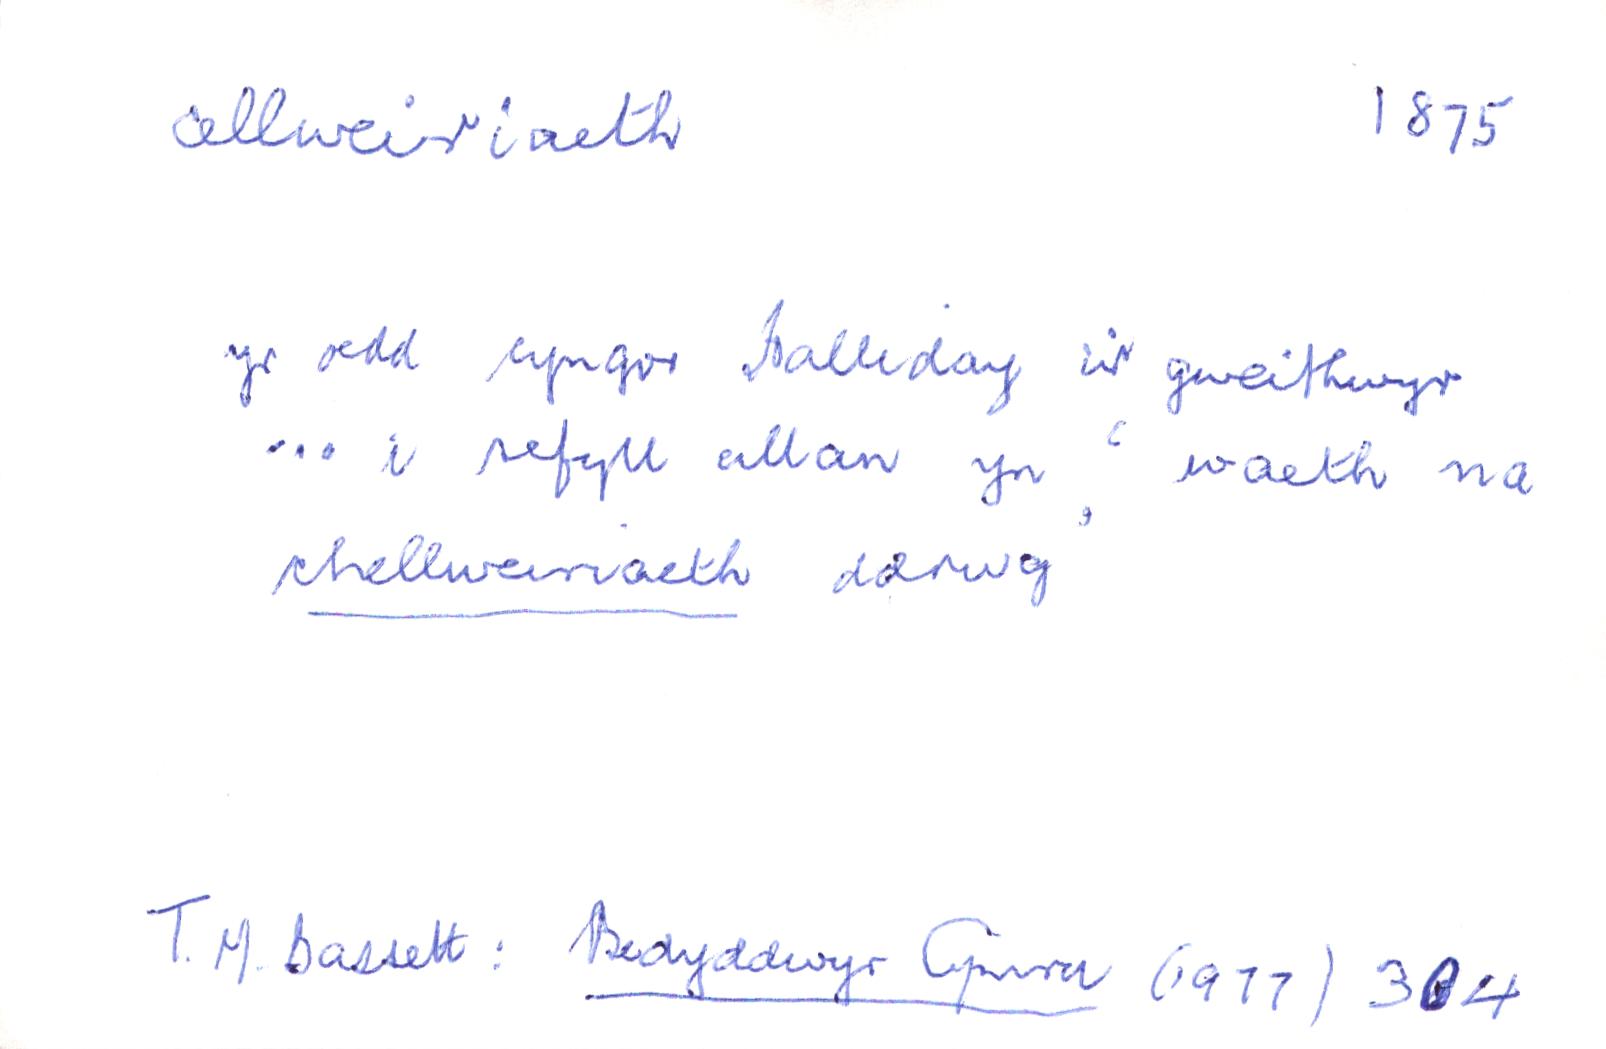 cellweiriaeth 1875
yr oedd cyngor Halliday i'r gweithwyr
... i sefyll allan yn ‘waeth na
chellweiriaeth ddrwg’
T. M. Bassett: Bedyddwyr Cymru (1977) 304